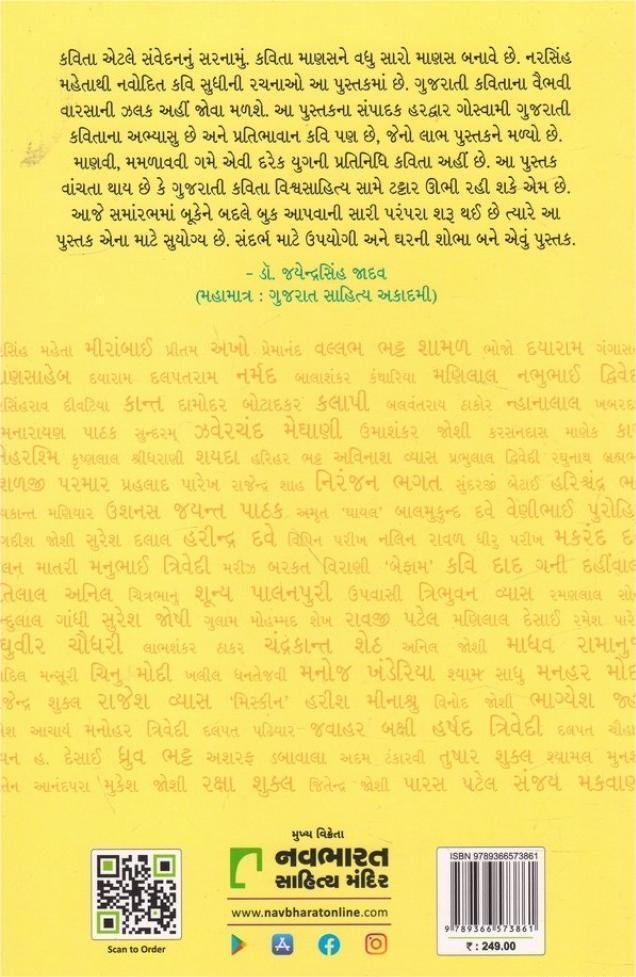 કવિતા એટલે સંવેદનનું સરનામું. કવિતા માણસને વધુ સારો માણસ બનાવે છે. નરસિંહ
મહેતાથી નવોદિત કવિ સુધીની રચનાઓ આ પુસ્તકમાં છે. ગુજરાતી કવિતાના વૈભવી
વારસાની ઝલક અહીં જોવા મળશે. આ પુસ્તકના સંપાદક હરદ્વાર ગોસ્વામી ગુજરાતી
કવિતાના અભ્યાસુ છે અને પ્રતિભાવાન કવિ પણ છે, જેનો લાભ પુસ્તકને મળ્યો છે.
માણવી, મમળાવવી ગમે એવી દરેક યુગની પ્રતિનિધિ કવિતા અહીં છે. આ પુસ્તક
વાંચતા થાય છે કે ગુજરાતી કવિતા વિશ્વસાહિત્ય સામે ટટ્ટાર ઊભી રહી શકે એમ છે.
આજે સમાંરભમાં બૂકેને બદલે બુક આપવાની સારી પરંપરા શરૂ થઈ છે ત્યારે આ
પુસ્તક એના માટે સુયોગ્ય છે. સંદર્ભ માટે ઉપયોગી અને ઘરની શોભા બને એવું પુસ્તક.
- ડૉ. જયેન્દ્રસિંહ જાદવ
(મહામાત્ર : ગુજરાત સાહિત્ય અકાદમી)
રસિંહ મહેતા મીરાંબાઈ પ્રીતમ અખો પ્રેમાનંદ વલ્લભ ભટ્ટ શામળ ભોજો દયારામ ગંગાસ
ાણસાહેબ દયારામ દલપતરામ નર્મદ બાલાશંકર કંથારિયા મણિલાલ નભુભાઈ દ્વિવે
રસિંહરાવ દીવટિયા કાન્ત દામોદર બોટાદકર કલાપી બલવંતરાય ઠાકોર ન્હાનાલાલ ખબરદ
મનારાયણ પાઠક સુન્દરમ્ ઝવેરચંદ મેઘાણી ઉમાશંકર જોશી કરસનદાસ માણેક કા
નેહરશ્મિ કૃષ્ણલાલ શ્રીધરાણી શયદા હરિહર ભટ્ટ અવિનાશ વ્યાસ પ્રભુલાલ દ્વિવેદી રઘુનાથ બ્રહ્મભ
શળજી પરમાર પ્રહલાદ પારેખ રાજેન્દ્ર શાહ નિરંજન ભગત સુંદરજી બેટાઈ હરિશ્ચંદ્ર ભ
યકાન્ત મણિયાર ઉશનસ જયન્ત પાઠક અમૃત 'ઘાયલ' બાલમુકુન્દ દવે વેણીભાઈ પુરોહિ
ગદીશ જોશી સુરેશ દલાલ હરીન્દ્ર દવે વિપિન પરીખ નલિન રાવળ ધીરુ પરીખ મકરંદ દ
લન માતરી મનુભાઈ ત્રિવેદી મરીઝ બરકત વિરાણી 'બેફામ' કવિ દાદ ગની દહીંવાલ
તિલાલ અનિલ ચિત્રભાનુ શૂન્ય પાલનપુરી ઉપવાસી ત્રિભુવન વ્યાસ રમણલાલ સો
ન્દુલાલ ગાંધી સુરેશ જોષી ગુલામ મોહમ્મદ શેખ રાવજી પટેલ મણિલાલ દેસાઈ રમેશ પારે
ઘુવીર ચૌધરી લાભશંકર ઠાકર ચંદ્રકાન્ત શેઠ અનિલ જોશી માધવ રામાનુ
ાદિલ મન્સૂરી ચિનુ મોદી ખલીલ ધનતેજવી મનોજ ખંડેરિયા શ્યામ સાધુ મનહર મોદ
જેન્દ્ર શુક્લ રાજેશ વ્યાસ 'મિસ્કીન' હરીશ મીનાશ્રુ વિનોદ જોશી ભાગ્યેશ જ્હ
ેશ આચાર્ય મનોહર ત્રિવેદી દલપત પઢિયાર જવાહર બક્ષી હર્ષદ ત્રિવેદી દલપત ચૌહા
યન હ. દેસાઈ ધ્રુવ ભટ્ટ અશરફ ડબાવાલા અદમ ટંકારવી તુષાર શુક્લ શ્યામલ મુનશ
તેન આનંદપરા મુકેશ જોશી રક્ષા શુક્લ જિતેન્દ્ર જોશી પારસ પટેલ સંજય મકવાણ
મુખ્ય વિક્રેતા
નવભારત
સાહિત્ય મંદિર
www.navbharatonline.com
Scan to Order
ISBN 9789366573861
9 789366 573861
₹ : 249.00